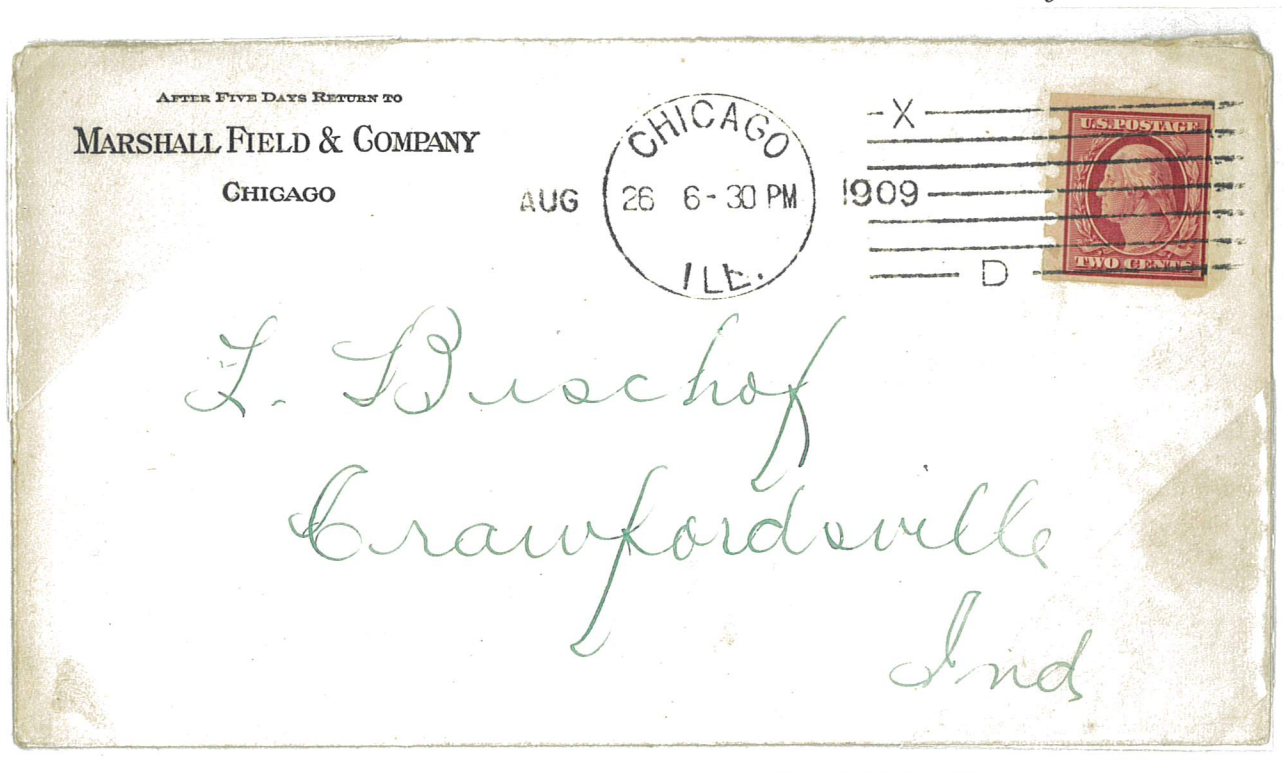 AFTER FIVE DAYS RETURN TO
MARSHALL FIELD & COMPANY
CHICAGO
CHICAGO
AUG 26 6-30 PM 1909
ILL.
X
D
U.S. POSTAGE
TWO CENTS
L. Bischof
Crawfordsville
Ind